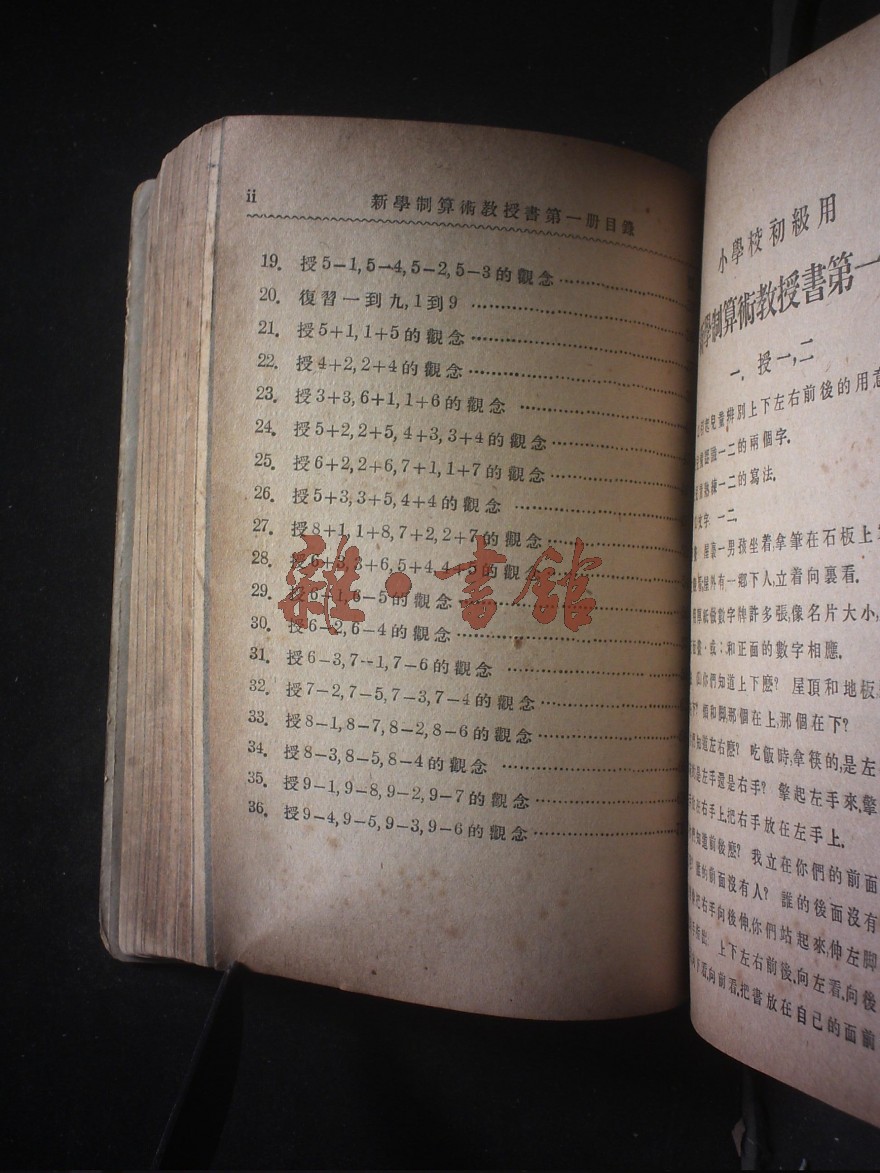 ii
新學制算術教授書第一册目錄
19. 授5－1,5－4,5－2,5－3的觀念
20. 復習一到九,1到9
21. 授5+1,1+5的觀念
22. 授4+2,2+4的觀念
23. 授3+3,6+1,1+6的觀念
24. 授5+2,2+5,4+3,3+4的觀念
25. 授6+2,2+6,7+1,1+7的觀念
26. 授5+3,3+5,4+4的觀念
27. 授8+1,1+8,7+2,2+7的觀念
28. 授6+3,3+6,5+4,4+5的觀念
29. 授6－1,6－5的觀念
30. 授6－2,6－4的觀念
31. 授6－3,7－1,7－6的觀念
32. 授7－2,7－5,7－3,7－4的觀念
33. 授8－1,8－7,8－2,8－6的觀念
34. 授8－3,8－5,8－4的觀念
35. 授9－1,9－8,9－2,9－7的觀念
36. 授9－4,9－5,9－3,9－6的觀念
雜·書館
小學校初級用
學制算術教授書第一
一. 授一,二
兒童辨別上下左右前後的用意
一二的兩個字.
熟練一二的寫法.
文字 一二.
屋裏一男孩坐着,拿筆在石板上
屋外有一鄉下人,立着向裏看.
數字牌許多張,像名片大小,
和正面的數字相應.
你們知道上下麽? 屋頂和地板
頭和脚,那個在上,那個在下?
知道左右麽? 吃飯時,拿筷的,是左
是左手還是右手? 擎起左手來,擎
右手上,把右手放在左手上.
知道前後麽? 我立在你們的前面
的前面沒有人? 誰的後面沒有
把右手向後伸,你們站起來,伸左脚
上下左右前後,向左看,向後
看,向前看,把書放在自己的面前